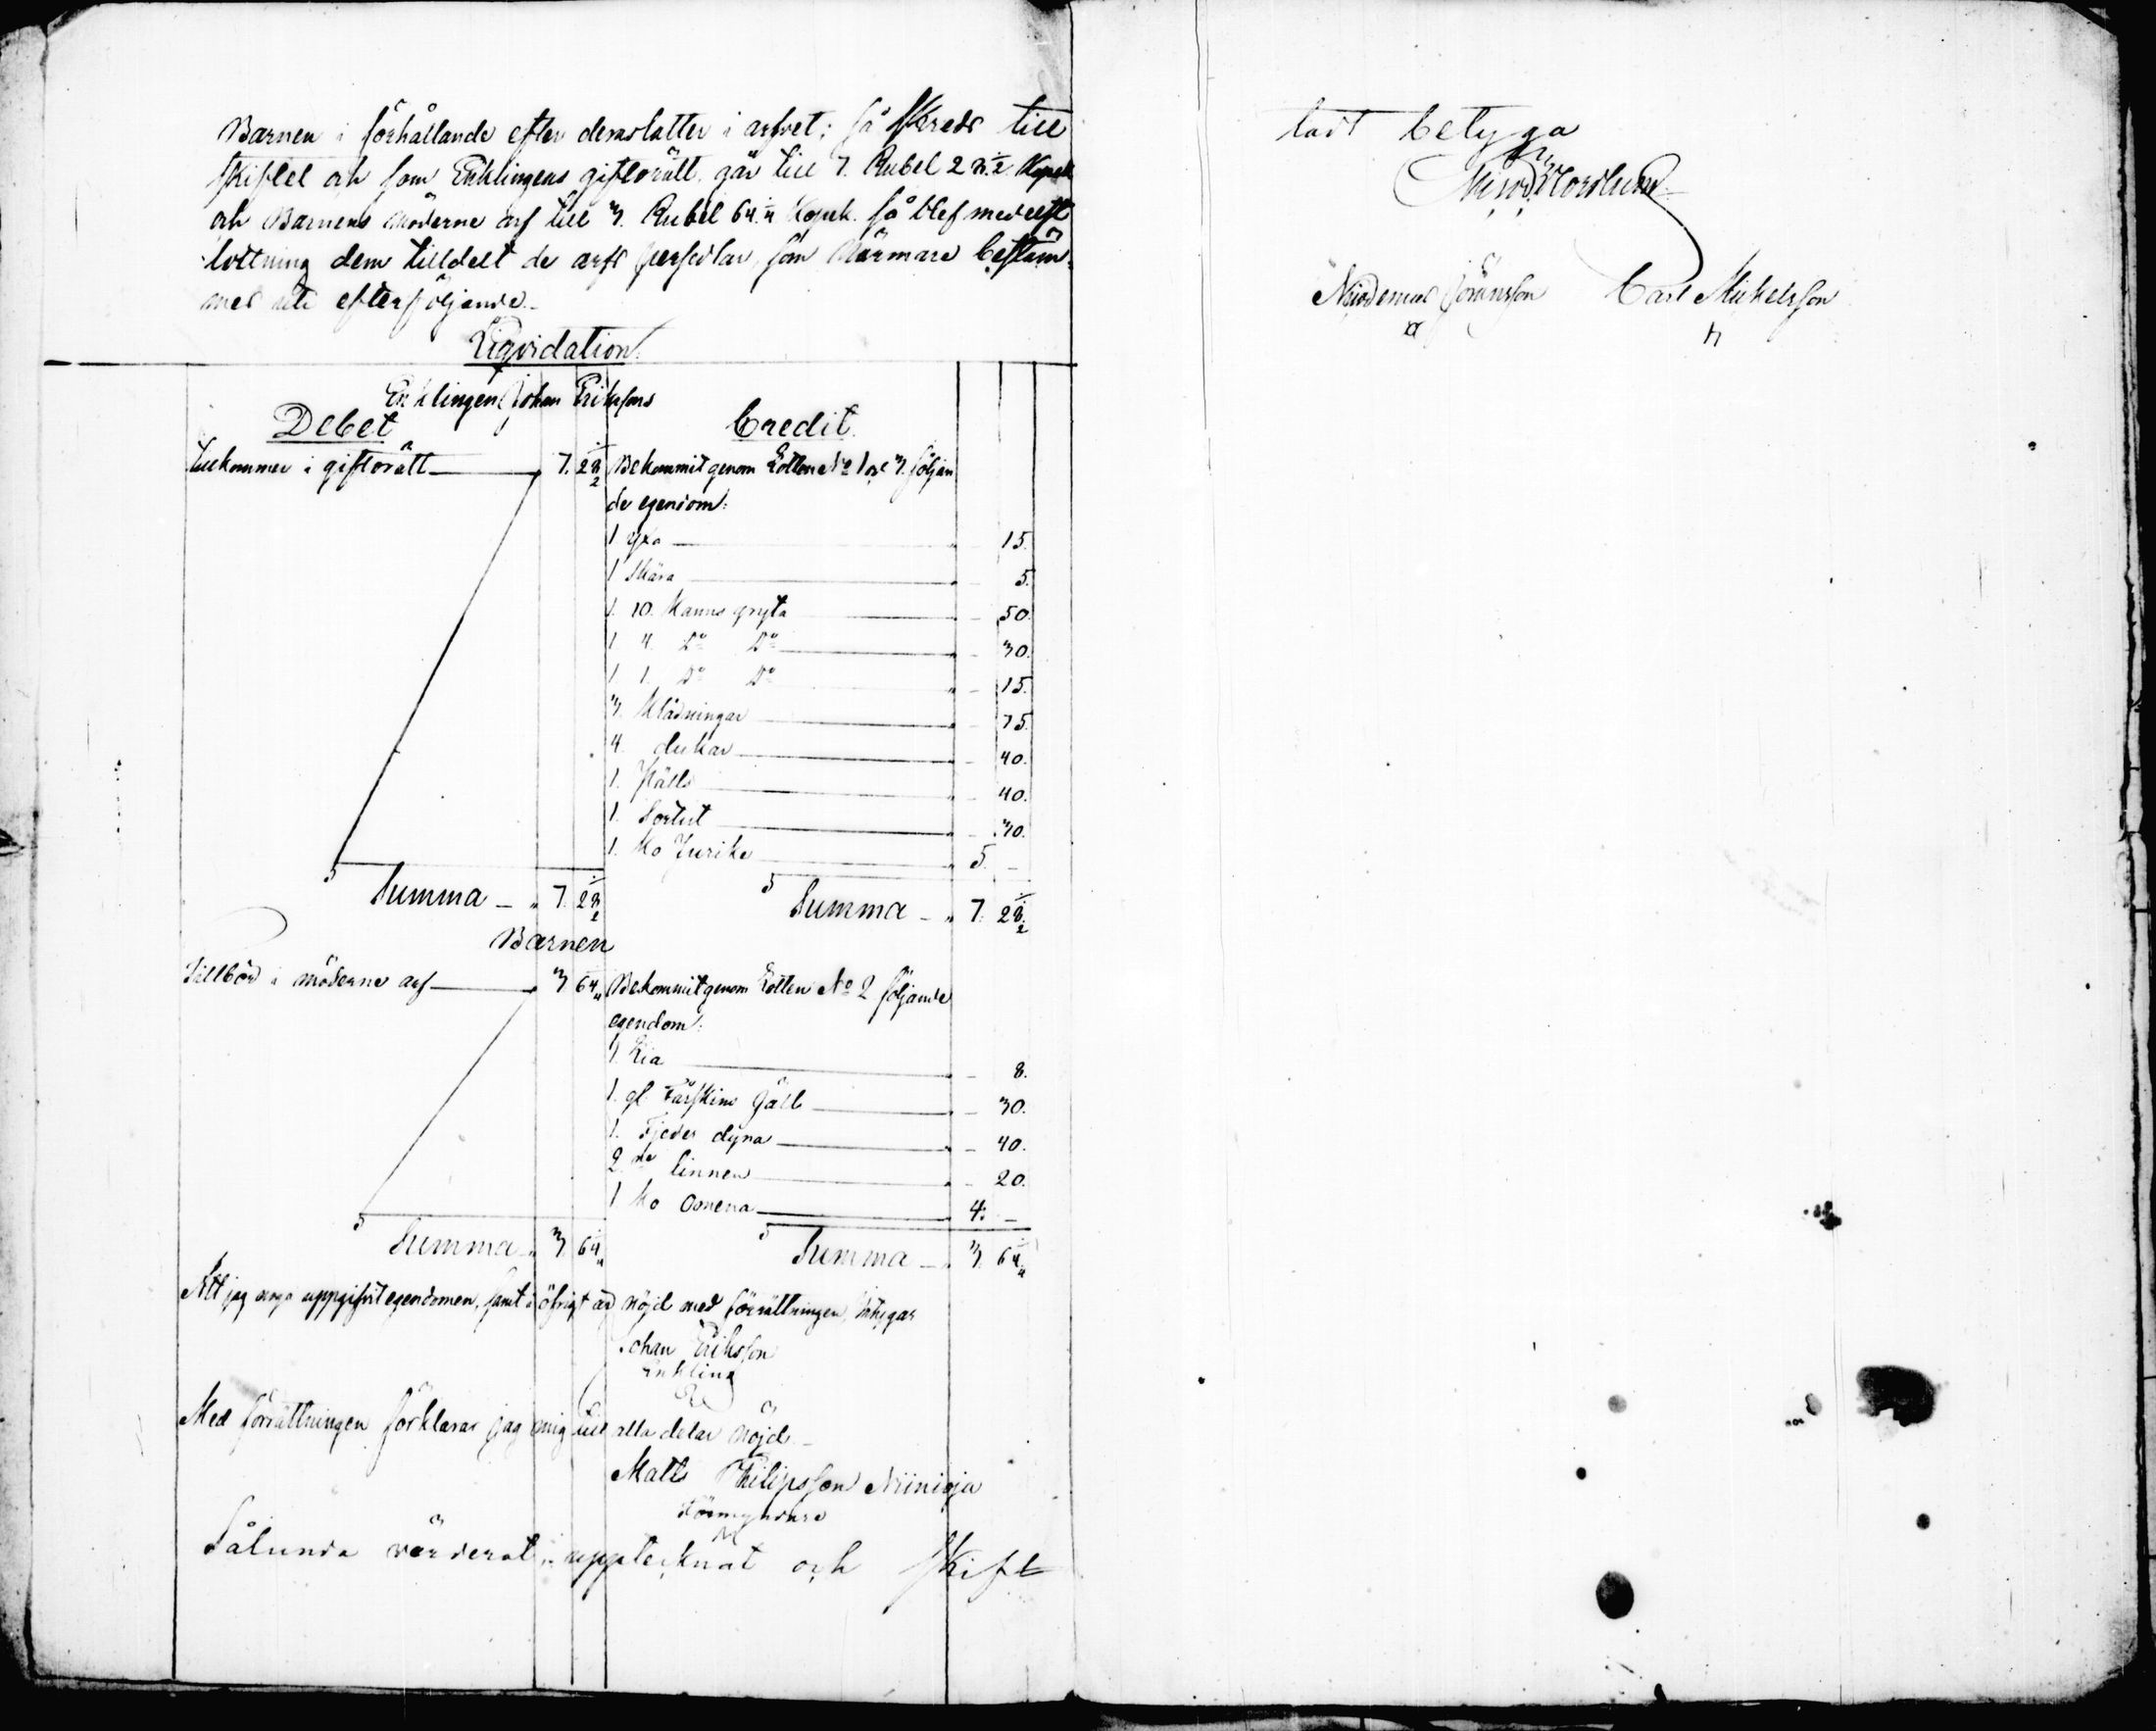 Barnen i förhållande efter deras latter i arfvet; så skreds till
skiftet och som Enklingens giftorätt går till 7. Rubel 28.½ Kopek
och Barnens möderne arf till 3. Rubel 64.¼ Kopek. så blef medelst
lottning dem tilldelt de arfs persedlar, som närmare bestäm-
mes uti efterföljande.
Liqvidation.
Enklingen Johan Eriksons
Debet Credit.
tillkommer i giftorätt 7. 28½ Bekommit genom Lotten No 1 och 3. följan
de egendom:
1 yxa 15.
1 Skära 5.
1. 10. Kanns gryta 50.
1. 4. Do Do 30.
1. 1. Do Do 15.
3. Klädningar 75.
4. dukar 40.
1. 40.
1. Sortut 30.
1. Ko Jurike 5. –
Summa – „ 7. 28½ Summa – „ 7. 28½
Barnen
Tillböd i möderne arf 3 64¼ Bekommit genom Lotten No 2 följande
egendom:
1. Lia 8.
1. gl. Fårskins fäll 30.
1. Fjeder dyna 40.
2 ne linnen 20.
1 Ko Omena 4. –
Summa „ 3. 64¼ Summa – „ 3. 64¼
Att jag noga uppgifvit egendomen, samt i öfrigt är nöjd med förrättningen, intygar
Johan Eriksson
Enkling
Med förrättningen förklarar jag mig till alla delar nöjd –
Matts Philipsson Niinioja
Förmyndare
Sålunda värderat, upptecknat och skift
tadt betyga
Nordlund
Nicodemus Göransson Carl Mickelsson